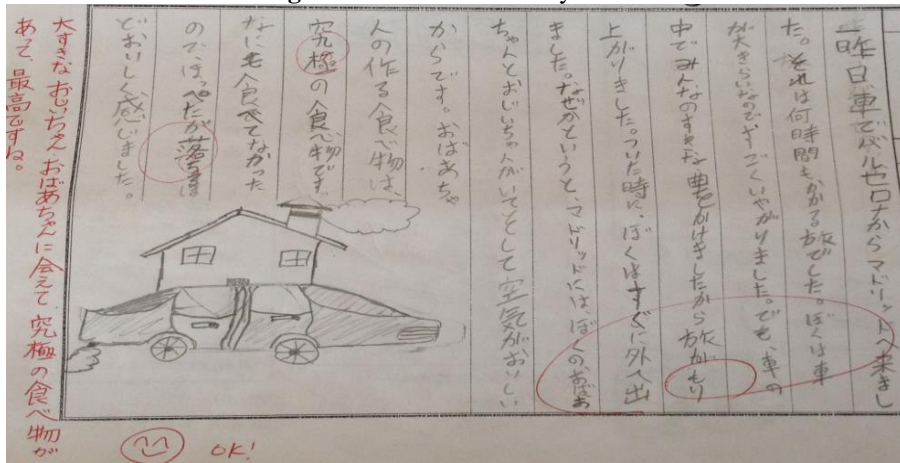 一昨日、車でバルセロナからマドリットへ来まし
た。それは何時間もかかる旅でした。ぼくは車
が大きらいなのですごくいやがりました。でも、車の
中でみんなのすきな曲をかけましたから旅がもり
上がりました。ついた時に、ぼくはすぐに外へ出
ました。なぜかというと、マドリッドには、ぼくのおばあ
ちゃんとおじいちゃんがいてとして空気がおいしい
からです。おばあちゃ
人の作る食べ物は、
究極の食べ物です。
なにも食べてなかった
ので、ほっぺたが落ちるほ
どおいしく感じました。
大すきなおじいちゃん、おばあちゃんに会えて、究極の食べ物が
あって、最高ですね。
OK!